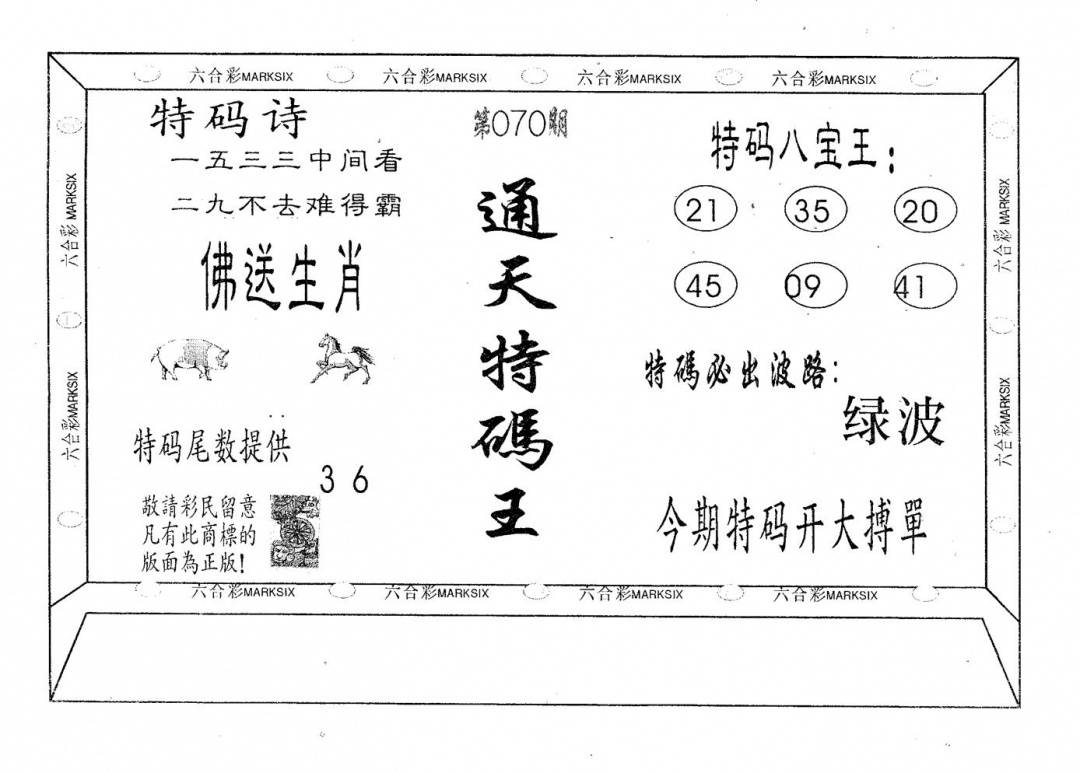 六合彩MARKSIX 六合彩MARKSIX 六合彩MARKSIX 六合彩MARKSIX
六合彩 MARKSIX
六合彩MARKSIX
特码诗
一五三三中间看
二九不去难得霸
佛送生肖
特码尾数提供
3 6
敬請彩民留意
凡有此商標的
版面為正版!
第070期
通天特碼王
特码八宝王:
21 35 20
45 09 41
特碼必出波路:
绿波
今期特码开大搏單
六合彩 MARKSIX
六合彩MARKSIX
六合彩MARKSIX 六合彩MARKSIX 六合彩MARKSIX 六合彩MARKSIX